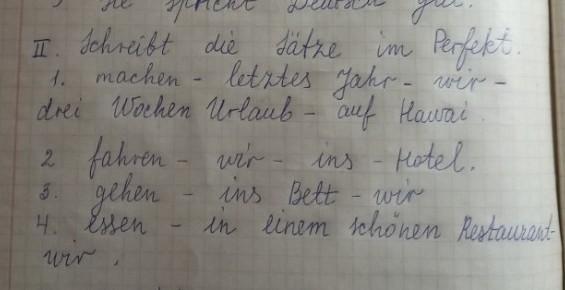 Sie spricht Deutsch gut.
II. Schreibt die Sätze im Perfekt.
1. machen - letztes Jahr - wir -
drei Wochen Urlaub - auf Hawai.
2 fahren - wir - ins - Hotel.
3. gehen - ins Bett - wir
4. essen - in einem schönen Restaurant-
wir.